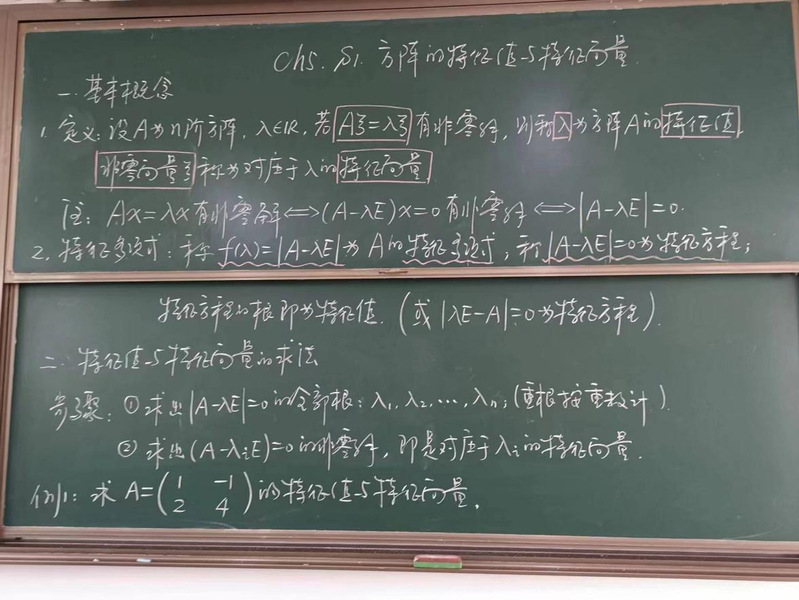 Ch5. §1. 方阵的特征值与特征向量.
一. 基本概念
1. 定义: 设A为n阶方阵, λ∈R, 若 Aξ=λξ 有非零解, 则称λ为方阵A的特征值,
非零向量ξ称为对应于λ的特征向量.
注: Ax=λx有非零解⟺(A-λE)x=0有非零解⟺|A-λE|=0.
2. 特征多项式: 称 f(λ)=|A-λE|为A的特征多项式, 称|A-λE|=0为特征方程;
特征方程的根即为特征值. (或|λE-A|=0为特征方程).
二. 特征值与特征向量的求法
步骤: ①求出|A-λE|=0的全部根: λ₁, λ₂, ⋯, λₙ; (重根按重数计).
②求出(A-λᵢE)=0的非零解, 即是对应于λᵢ的特征向量.
例1: 求 A=(1 -1
2 4)的特征值与特征向量.